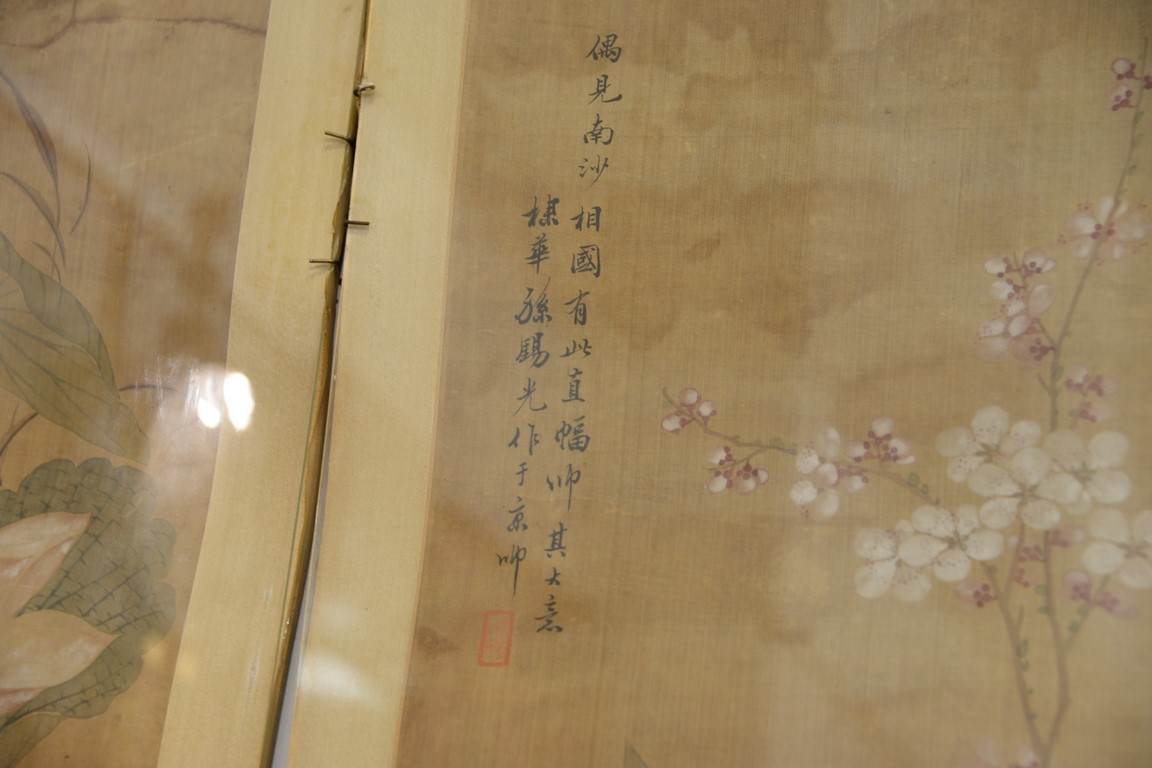 偶見南沙相國有此直幅師其大意
棣華孫錫光作于京師